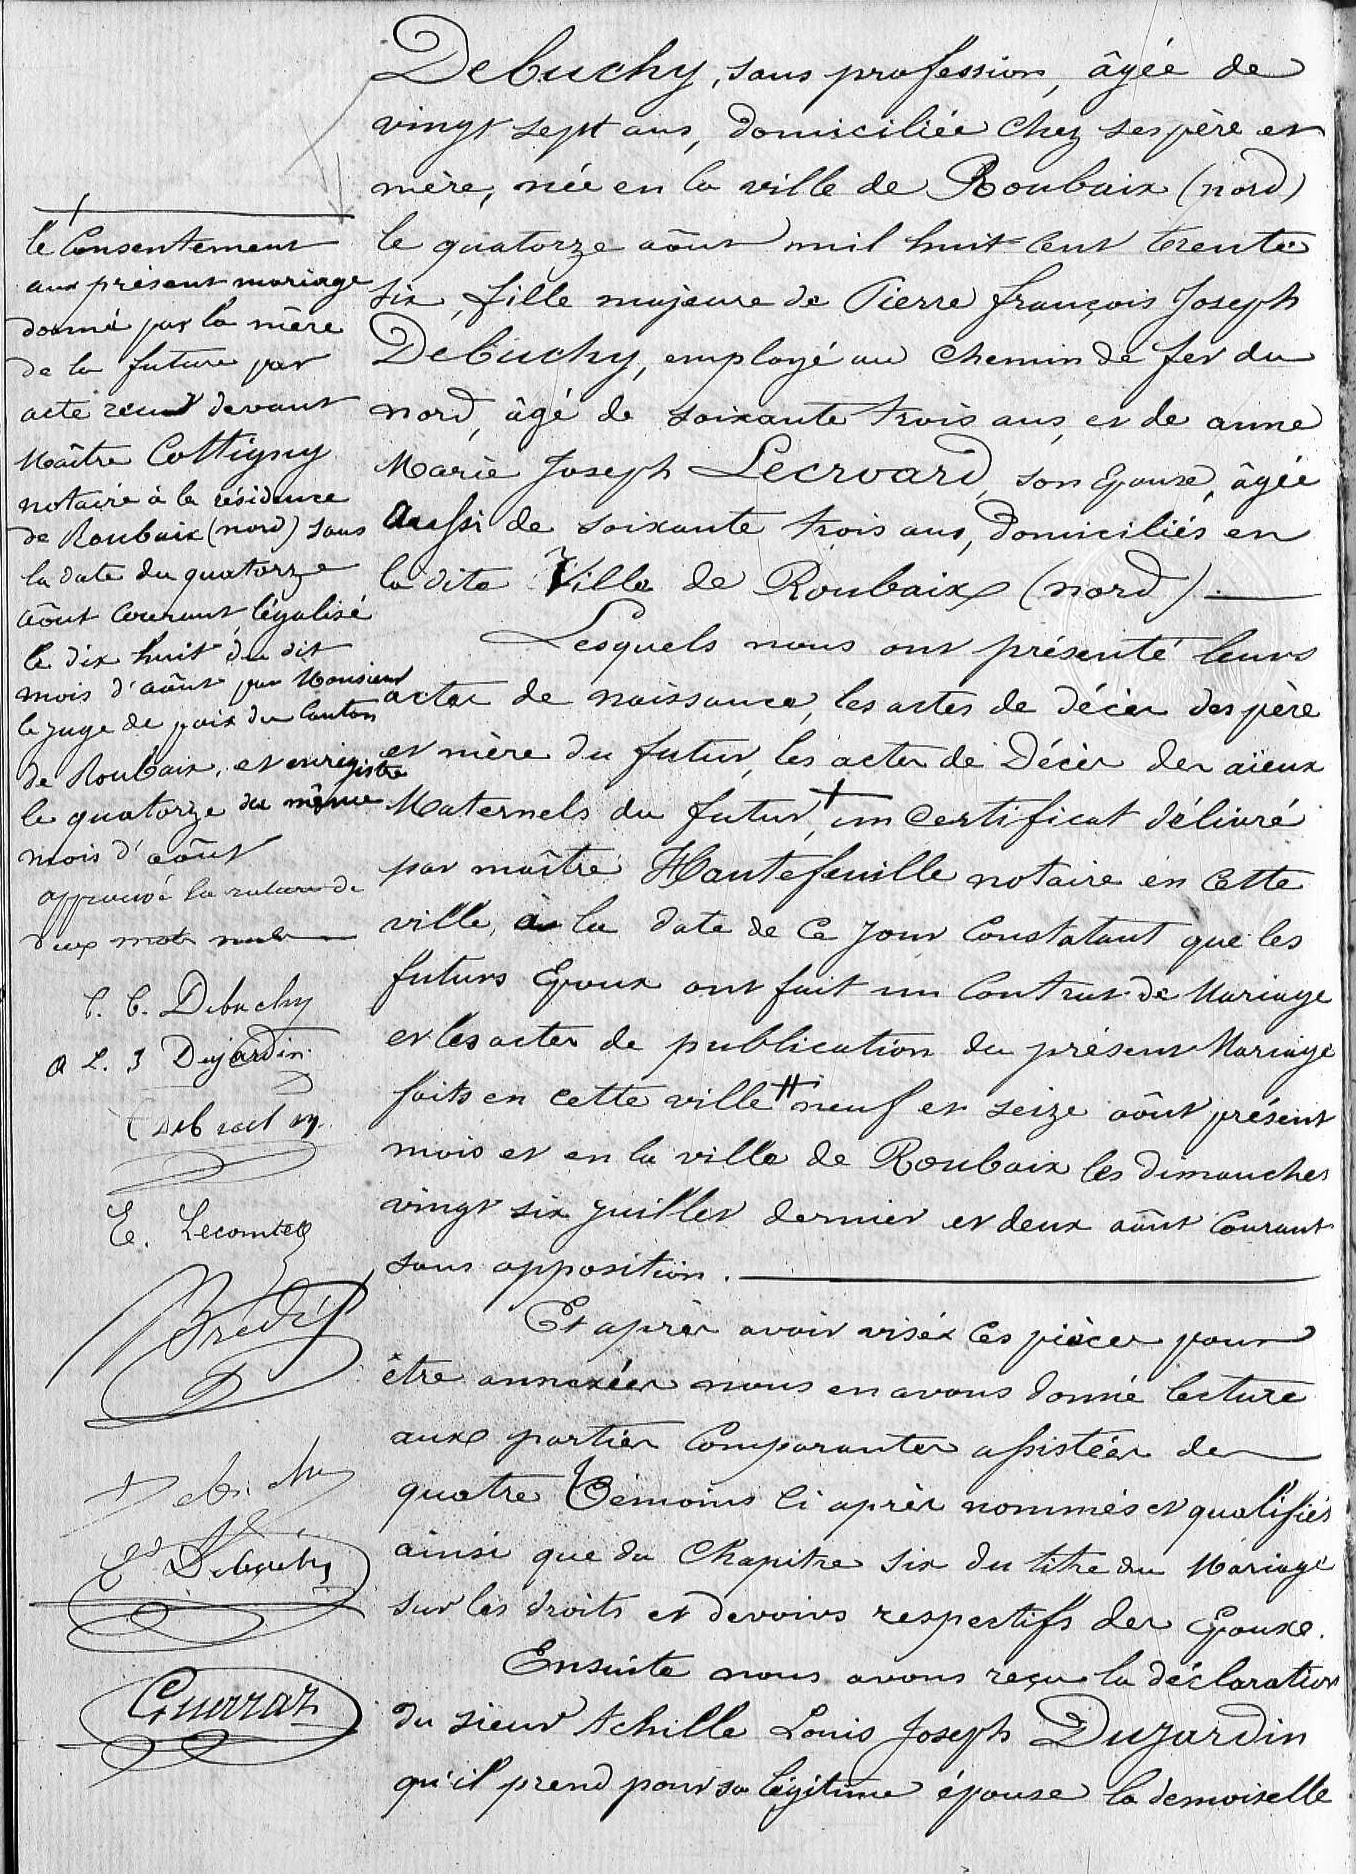 Debuchy, sans profession, âgée de
vingt sept ans, domiciliée chez ses père et
mère, née en la ville de Roubaix (nord)
le quatorze aôut mil huit cent trente
six, fille majeure de Pierre françois Joseph
Debuchy, employé au chemin de fer du
nord, âgé de soixante trois ans, et de anne
Marie Joseph Lecroard, son Epouse, âgée
Aussi de soixante trois ans, domiciliés en
la dite Ville de Roubaix (nord).
Lesquels nous ont présenté leurs
actes de naissance, les actes de décès des père
et mère du futur, les actes de Décès des aïeux
Maternels du futur, + un certificat délivré
par maître Hautefeuille notaire en cette
ville, à la date de ce jour constatant que les
futurs Epoux ont fait un contrat de Mariage
et les actes de publication du présent Mariage
faits en cette ville # neuf et seize aôut présent
mois et en la ville de Roubaix les dimanches
vingt six juillet dernier et deux aôut courant
sans opposition.
Et après avoir visés ces pièces pour
être annexées nous en avons donné lecture
aux parties comparantes assistées de
quatre témoins ci après nommés et qualifiés
ainsi que du Chapitre six du titre du Mariage
sur les droits et devoirs respectifs des Epoux.
Ensuite nous avons reçu la déclaration
du sieur Achille Louis Joseph Dujardin
qu'il prend pour sa légitime épouse la demoiselle
+
le Consentement
aux présent mariage
donné par la mère
de la future par
acte reçu devant
Maître Cottigny
notaire à la résidence
de Roubaix (nord) sous
la date du quatorze
aôut courant, légalisé
le dix huit du dit
mois d'aôut par Monsieur
le juge de paix du Canton
de Roubaix, et enregistré
le quatorze du même
mois d'aôut
approuvé la rature de
deux mots nuls
C. C. Debuchy
A L. J Dujardin
E. Lecomte
Debuchy
Ed Debuchy
Guerraz